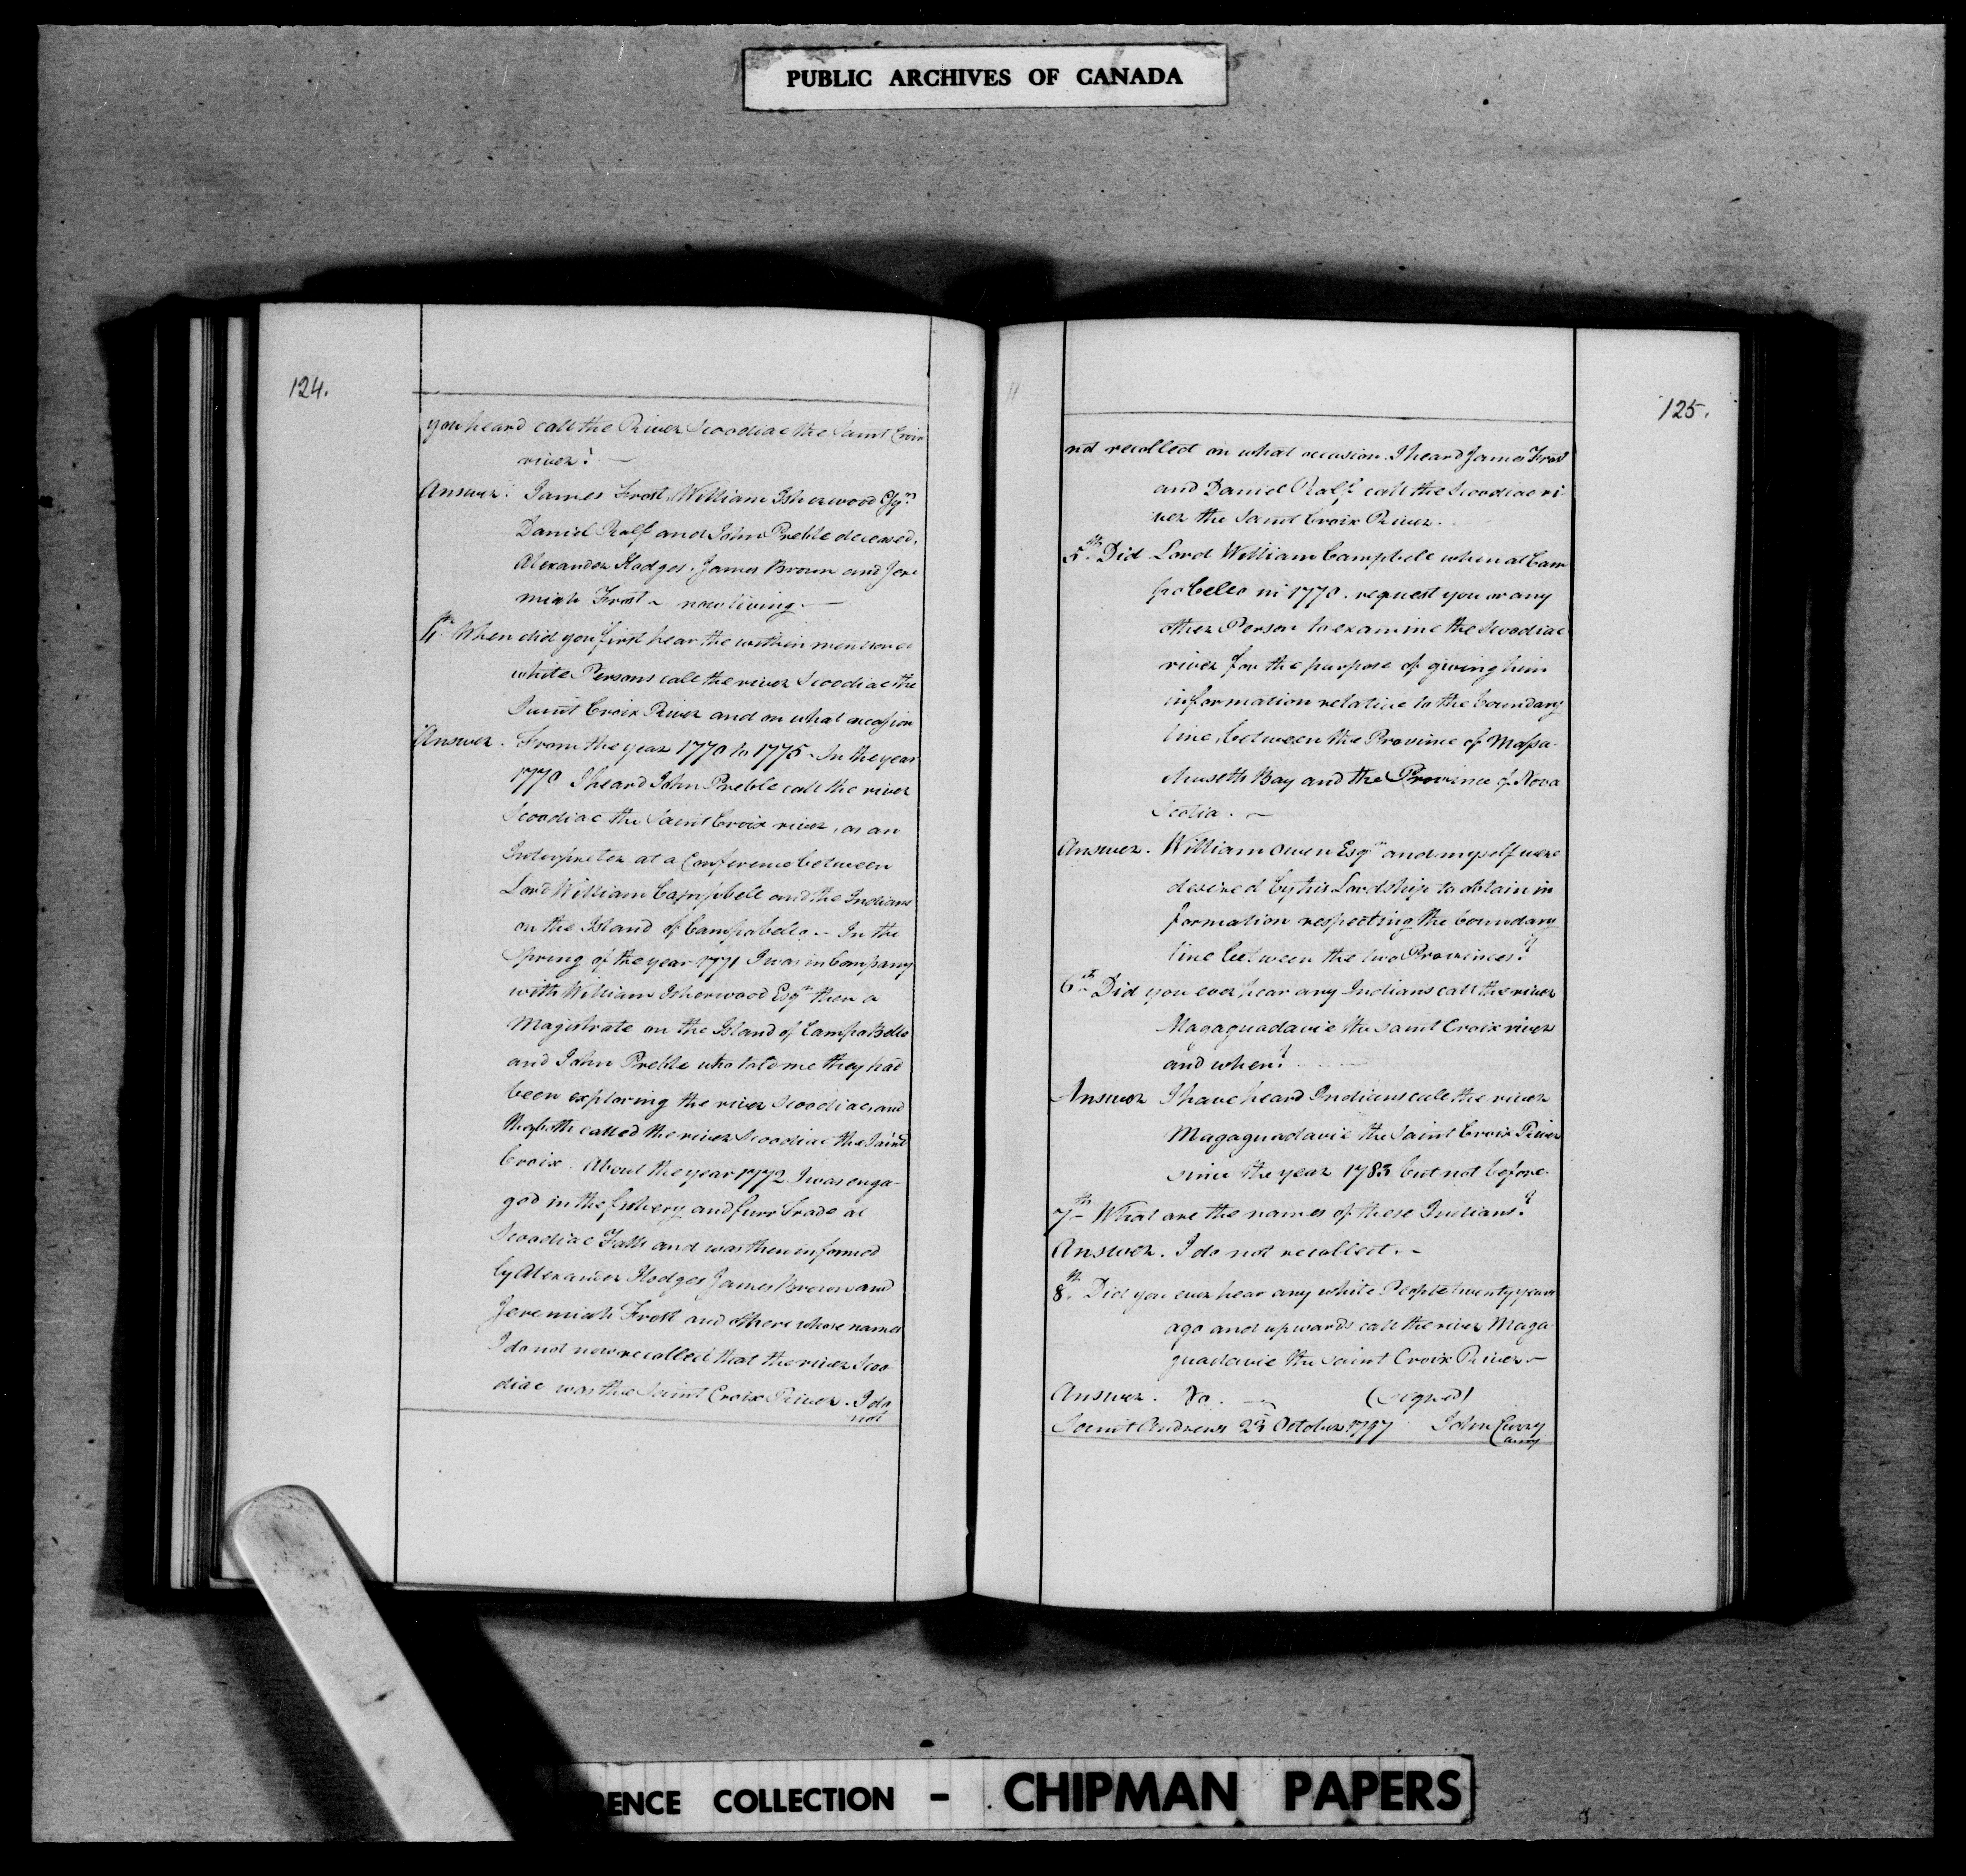 PUBLIC ARCHIVES OF CANADA
124.
you heard call the River Scoodiac the Saint Croix
river? —
Answer. James Frost, William Isherwood Esqrs
Daniel Ralf and John Preble deceased.
Alexander Hodges. James Brown and Jere
miah Frost - now living. —
4th. When did you first hear the within mentioned
white Persons call the river Scoodiac the
Saint Croix River and on what occasion
Answer. From the year 1770 to 1775 - In the year
1770 I heard John Preble call the river
Scoodiac the Saint Croix river, as an
Interpreter at a Conference between
Lord William Campbell and the Indians
on the Island of Campobello. - In the
Spring of the year 1771 I was in Company
with William Isherwood Esqr then a
Magistrate on the Island of Campo Bello
and John Preble who told me they had
been exploring the river Scoodiac, and
they both called the river Scoodiac the Saint
Croix. About the year 1772 I was enga-
ged in the fishery and furr trade at
Scoodiac Falls and was then informed
by Alexander Hodges James Brown and
Jeremiah Frost and others whose names
I do not now recollect that the river Scoo
diac was the Saint Croix River. I do
not
125.
not recollect on what occasion I heard James Frost
and Daniel Ralf call the Scoodiac ri-
ver the Saint Croix River.
5th. Did Lord William Campbell when at Cam
po bello in 1770. request you or any
other Person to examine the Scoodiac
river for the purpose of giving him
information relative to the boundary
line, between the Province of Massa-
chusetts Bay and the Province of Nova
Scotia. —
Answer. William Owen Esqr and myself were
desired by his Lordship to obtain in
formation respecting the boundary
line between the two Provinces?
6th. Did you ever hear any Indians call the river
Magaguadavic the Saint Croix river
and when?
Answer I have heard Indians call the river
Magaguadavic the Saint Croix River
since the year 1783 but not before.
7th - What are the names of these Indians?
Answer. I do not recollect. -
8th. Did you ever hear any white People twenty years
ago and upwards call the river Maga
guadavic the Saint Croix River. —
Answer. No. — (signed)
Saint Andrews 23 October 1797 John Curry
DENCE COLLECTION - CHIPMAN PAPERS